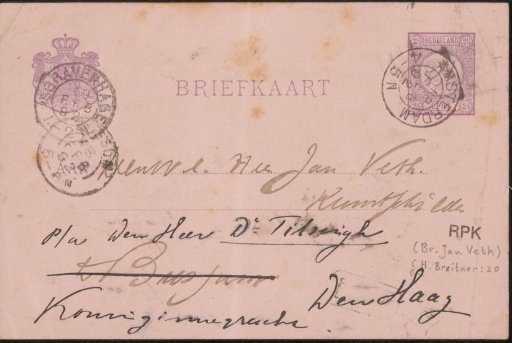 NEDERLAND
BRIEFKAART
'S GRAVENHAGE
AMSTERDAM
Heer Jan Veth.
Kunstschilder
p/a den Heer Dr Tilanijk
t Bussum
Den Haag
Koninginnegracht.
RPK
(Br. Jan Veth)
G.H. Breitner: 20